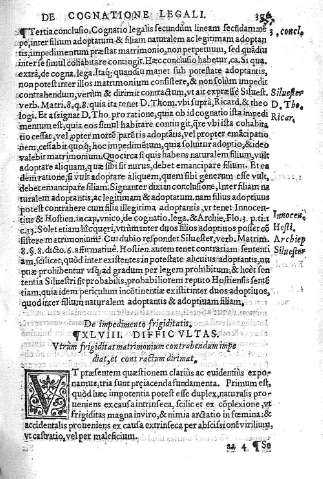 DE COGNATIONE LEGALI.
¶Tertia conclusio. Cognatio legalis secundum lineam
pe, inter filium adoptantis & filiam naturalem ac legitimam adoptan
tis, impedimentum præstat matrimonio, non perpetuum, sed quãdiu
inter se simul cohabitare contingit. Hæc conclusio habetur, ca. Si qua
extrà, de cogna. lega. quandiu manet sub potestate adoptantis,
non potest inter illos matrimonium consistere, & non solùm impedit
contrahendum, verùm & dirimit contractũ, vt ait expressè Siluest.
verb. Matri. 8. q. 8. quia ita tenet D. Thom. vbi suprà, Ricard. & theo
logi. Et assignat D. Tho. rationem, quia ob id cognatio ista impedi
mentum est, quia eos simul habitare contingit,
eo cessat, vel propter mortẽ patris adoptãtis, vel propter emãcipatio
nem, cessabit quoq; hoc impedimẽtum, quia soluitur adoptio, & ideo
valebit matrimonium. Quocirca si quis habens naturalem filium, vult
adoptare aliquam, quæ sibi sit nurus, debet emancipare filium. Et ea
dem ratione, si vult adoptare aliquem, quem sibi generum esse vult,
debet emancipare filiam. Signanter dixi in conclusione, Inter filium na
turalem adoptantis, & legitimam & adoptatam, nam filius adoptiuus
potest contrahere cum filia illegitima adoptantis, vt tenet Innocen-
tius & Hostien. in cap. vnico, de cognatio. lega. & Archie. Flo. 3. p. tit. 1
c. 23. Solet etiam hîc quęri, vtrùm inter duos filios adoptiuos possit cõ
sistere matrimonium? Cui dubio respondet Siluester, verb. Matrim.
8. §. 8. dicto. 6. affirmatiuè. Hostien. autem tenet contrariam sententi
am, scilicet, quòd inter existentes in potestate alicuius adoptantis, nu
ptiæ prohibentur vsq; ad gradum per legem prohibitum, & hæc sen
tentia Siluestri sit probabilis, probabiliorem reputo Hostiensis sentẽ
tiam, quia idem periculum incõtinentiæ existit inter duos adoptiuos,
quod inter filium naturalem adoptantis & adoptiuam filiam.
3. concl.
Siluester
D. Tho.
Ricar.
Innocen.
Hosti.
Archiep
Siluester
De impedimento frigiditatis.
¶XLVIII. DIFFICVLTAS.
Vtrùm frigiditas matrimonium contrahendum impe
diat, et contractum dirimat.
VT præsentem quæstionem clariùs ac euidentiùs expo-
namus, tria sunt præiacenda fundamenta. Primum est,
quòd hæc impotentia potest esse duplex, naturalis pro-
ueniens ex causa intrinseca, scilicet ex cõplexione, vt
frigiditas magna in viro, & nimia arctatio in fœmina: &
accidentalis proueniens ex causa extrinseca per abscissionẽ virilium,
vt castratio, vel per maleficium.
22 4 ¶So